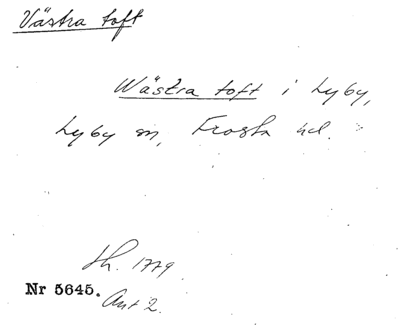 Västra toft
Wästra toft i Lyby,
Lyby sn, Frosta hd.
Sh. 1779
Nr 5645.
Akt 2.